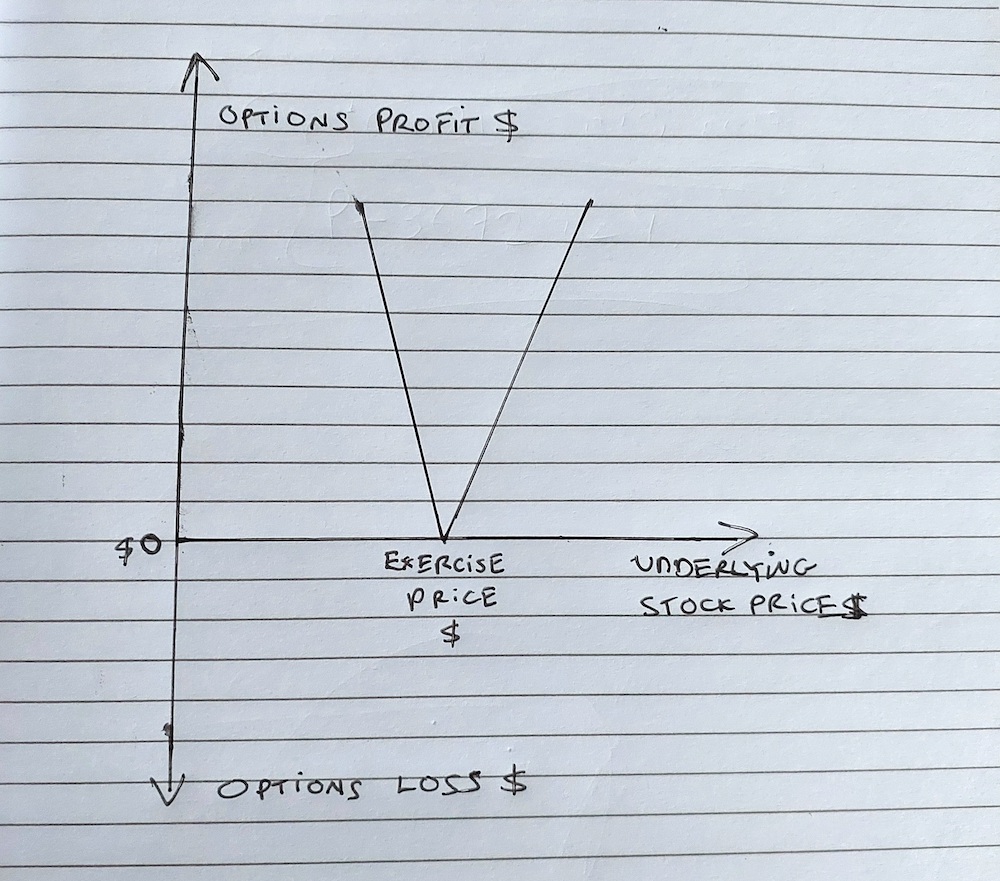 OPTIONS PROFIT $
$0
EXERCISE
PRICE
$
UNDERLYING
STOCK PRICE$
OPTIONS LOSS $